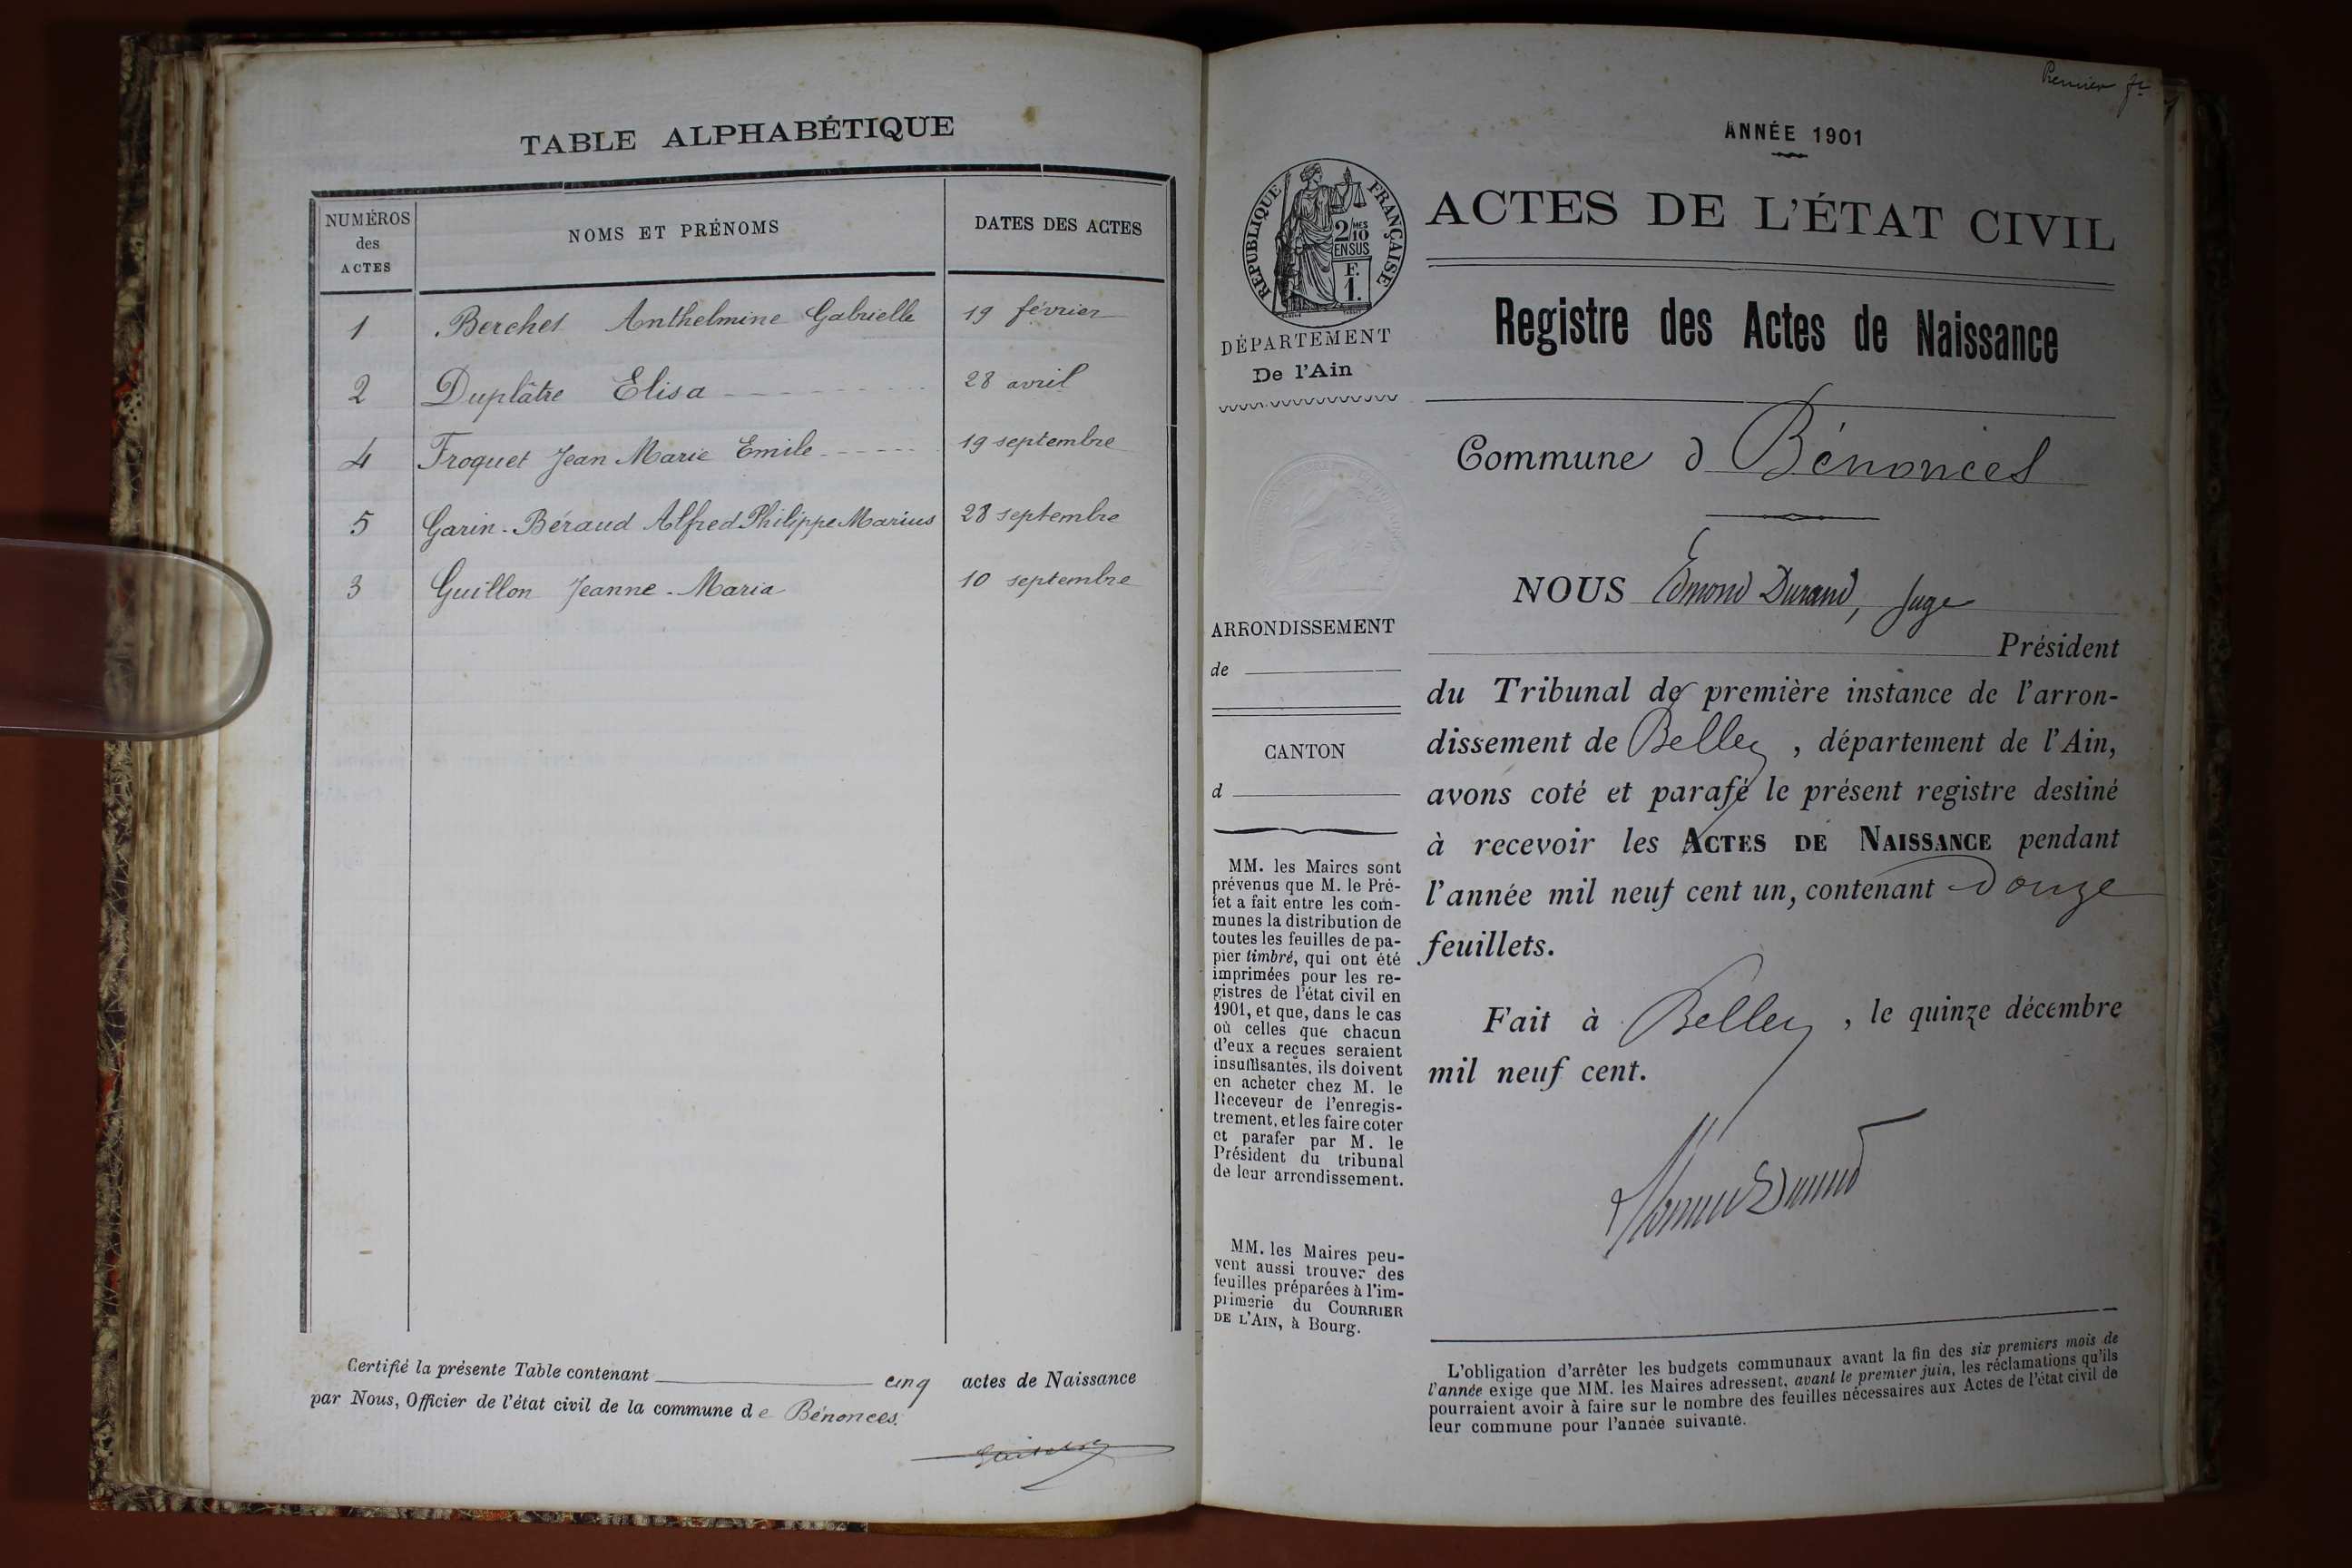 TABLE ALPHABÉTIQUE
NUMÉROS
des
ACTES
NOMS ET PRÉNOMS
DATES DES ACTES
1 Berchet Anthelmine Gabrielle 19 février
2 Duplâtre Elisa 28 avril
4 Froquet Jean Marie Emile 19 septembre
5 Garin-Béraud Alfred Philippe Marius 28 septembre
3 Guillon Jeanne-Maria 10 septembre
Certifié la présente Table contenant cinq actes de Naissance
par Nous, Officier de l'état civil de la commune de Bénonces.
Premier
ANNÉE 1901
RÉPUBLIQUE FRANÇAISE
2/10 MES
EN SUS
F.
1.
DÉPARTEMENT
De l'Ain
ARRONDISSEMENT
de
CANTON
d
MM. les Maires sont
prévenus que M. le Pré-
fet a fait entre les com-
munes la distribution de
toutes les feuilles de pa-
pier timbré, qui ont été
imprimées pour les re-
gistres de l'état civil en
1901, et que, dans le cas
où celles que chacun
d'eux a reçues seraient
insuffisantes, ils doivent
en acheter chez M. le
Receveur de l'enregis-
trement, et les faire coter
et parafer par M. le
Président du tribunal
de leur arrondissement.
MM. les Maires peu-
vent aussi trouver des
feuilles préparées à l'im-
primerie du COURRIER
DE L'AIN, à Bourg.
ACTES DE L'ÉTAT CIVIL
Registre des Actes de Naissance
Commune d Bénonces
NOUS Edmond Durand, Juge
Président
du Tribunal de première instance de l'arron-
dissement de Belley, département de l'Ain,
avons coté et parafé le présent registre destiné
à recevoir les ACTES DE NAISSANCE pendant
l'année mil neuf cent un, contenant douze
feuillets.
Fait à Belley, le quinze décembre
mil neuf cent.
L'obligation d'arrêter les budgets communaux avant la fin des six premiers mois de
l'année exige que MM. les Maires adressent, avant le premier juin, les réclamations qu'ils
pourraient avoir à faire sur le nombre des feuilles nécessaires aux Actes de l'état civil de
leur commune pour l'année suivante.